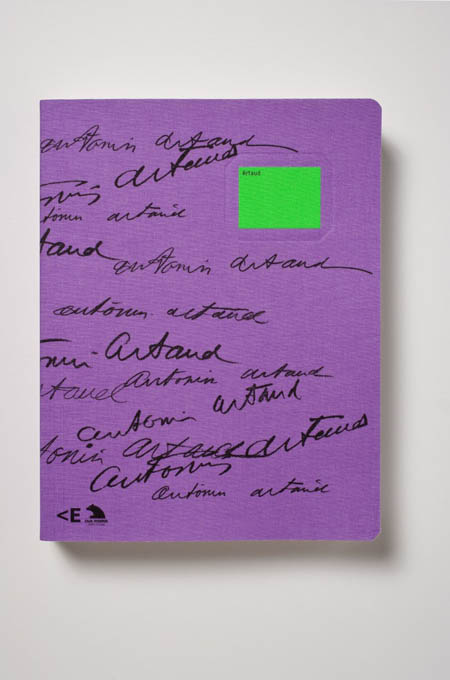 antonin artaud
artaud
Artaud
tonin
antonin artaud
artaud
antonin artaud
antonin artaud
tonin Artaud
artaud Antonin artaud
artaud
antonin
tonin Artaud artaud
antonin
antonin artaud
<E